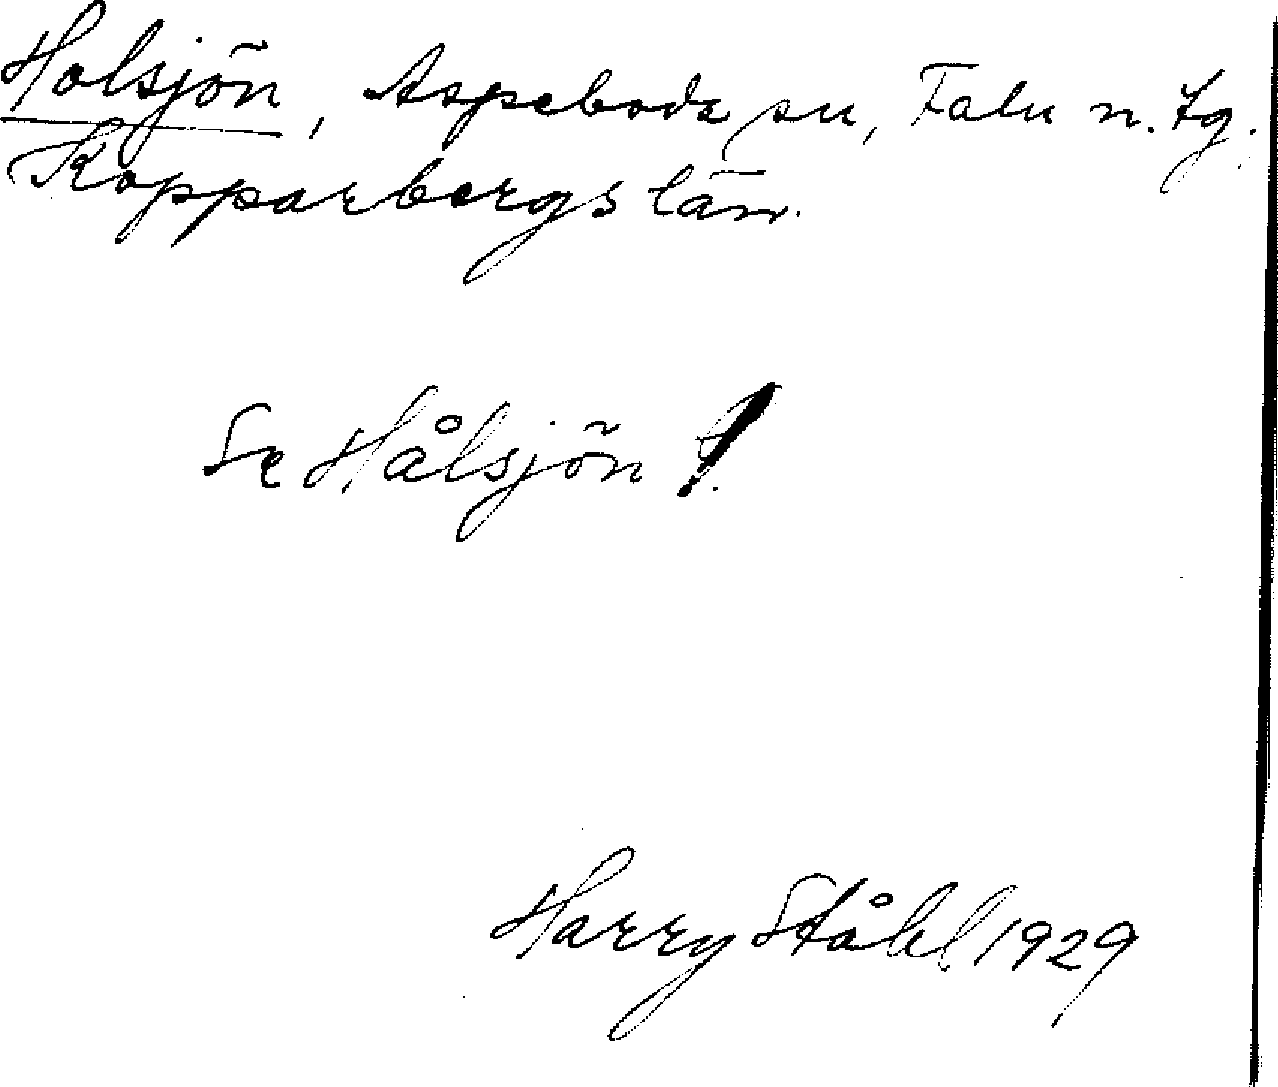 Holsjön, Aspeboda sn, Falu n. tg.
Kopparbergs län.
Se Hålsjön!
Harry Ståhl 1929